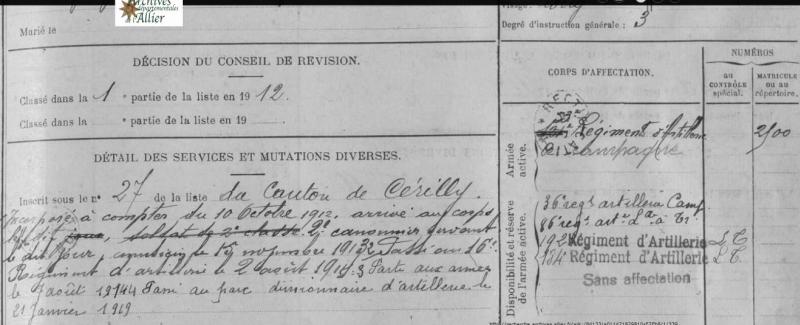 Archives
départementales
Allier
Marié le
Degré d'instruction générale : 3
DÉCISION DU CONSEIL DE REVISION.
Classé dans la 1 e partie de la liste en 1912.
Classé dans la e partie de la liste en 19
DÉTAIL DES SERVICES ET MUTATIONS DIVERSES.
Inscrit sous le n° 27 de la liste du Canton de Cérilly.
Incorporé à compter du 10 Octobre 1912, arrivé au corps
le dit jour, soldat de 2e classe. 2e canonnier servant
le dit jour, novembre 1913. Passé au 16e
Régiment d'artillerie le 2 août 1914. Parti aux armées
le août 1914 Passé au parc divisionnaire d'artillerie le
21 janvier 1919
CORPS D'AFFECTATION.
NUMÉROS
au
CONTRÔLE
spécial.
MATRICULE
ou au
répertoire.
Armée
active.
53e
Régiment d'Artillerie
de Campagne
2500
Disponibilité et réserve
de l'armée active.
36e reg artillerie Camp.
86e reg art
192 Régiment d'Artillerie
184 Régiment d'Artillerie
Sans affectation